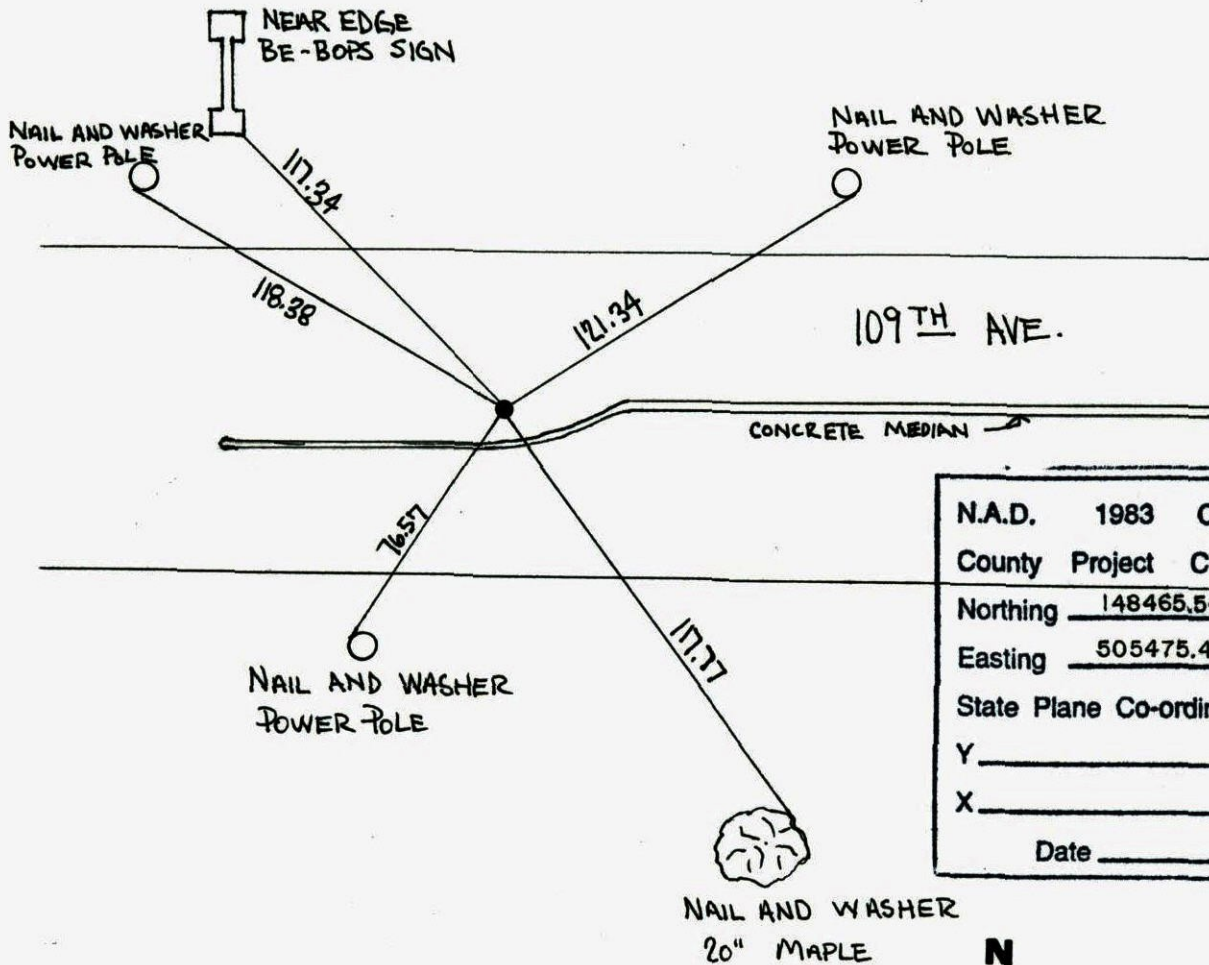 NEAR EDGE
BE-BOPS SIGN
NAIL AND WASHER
POWER POLE
NAIL AND WASHER
POWER POLE
117.34
118.38
121.34
109TH AVE.
CONCRETE MEDIAN
76.57
117.77
NAIL AND WASHER
POWER POLE
N.A.D. 1983 C
County Project C
Northing 148465.5
Easting 505475.4
State Plane Co-ordin
Y
X
Date
NAIL AND WASHER
20" MAPLE
N